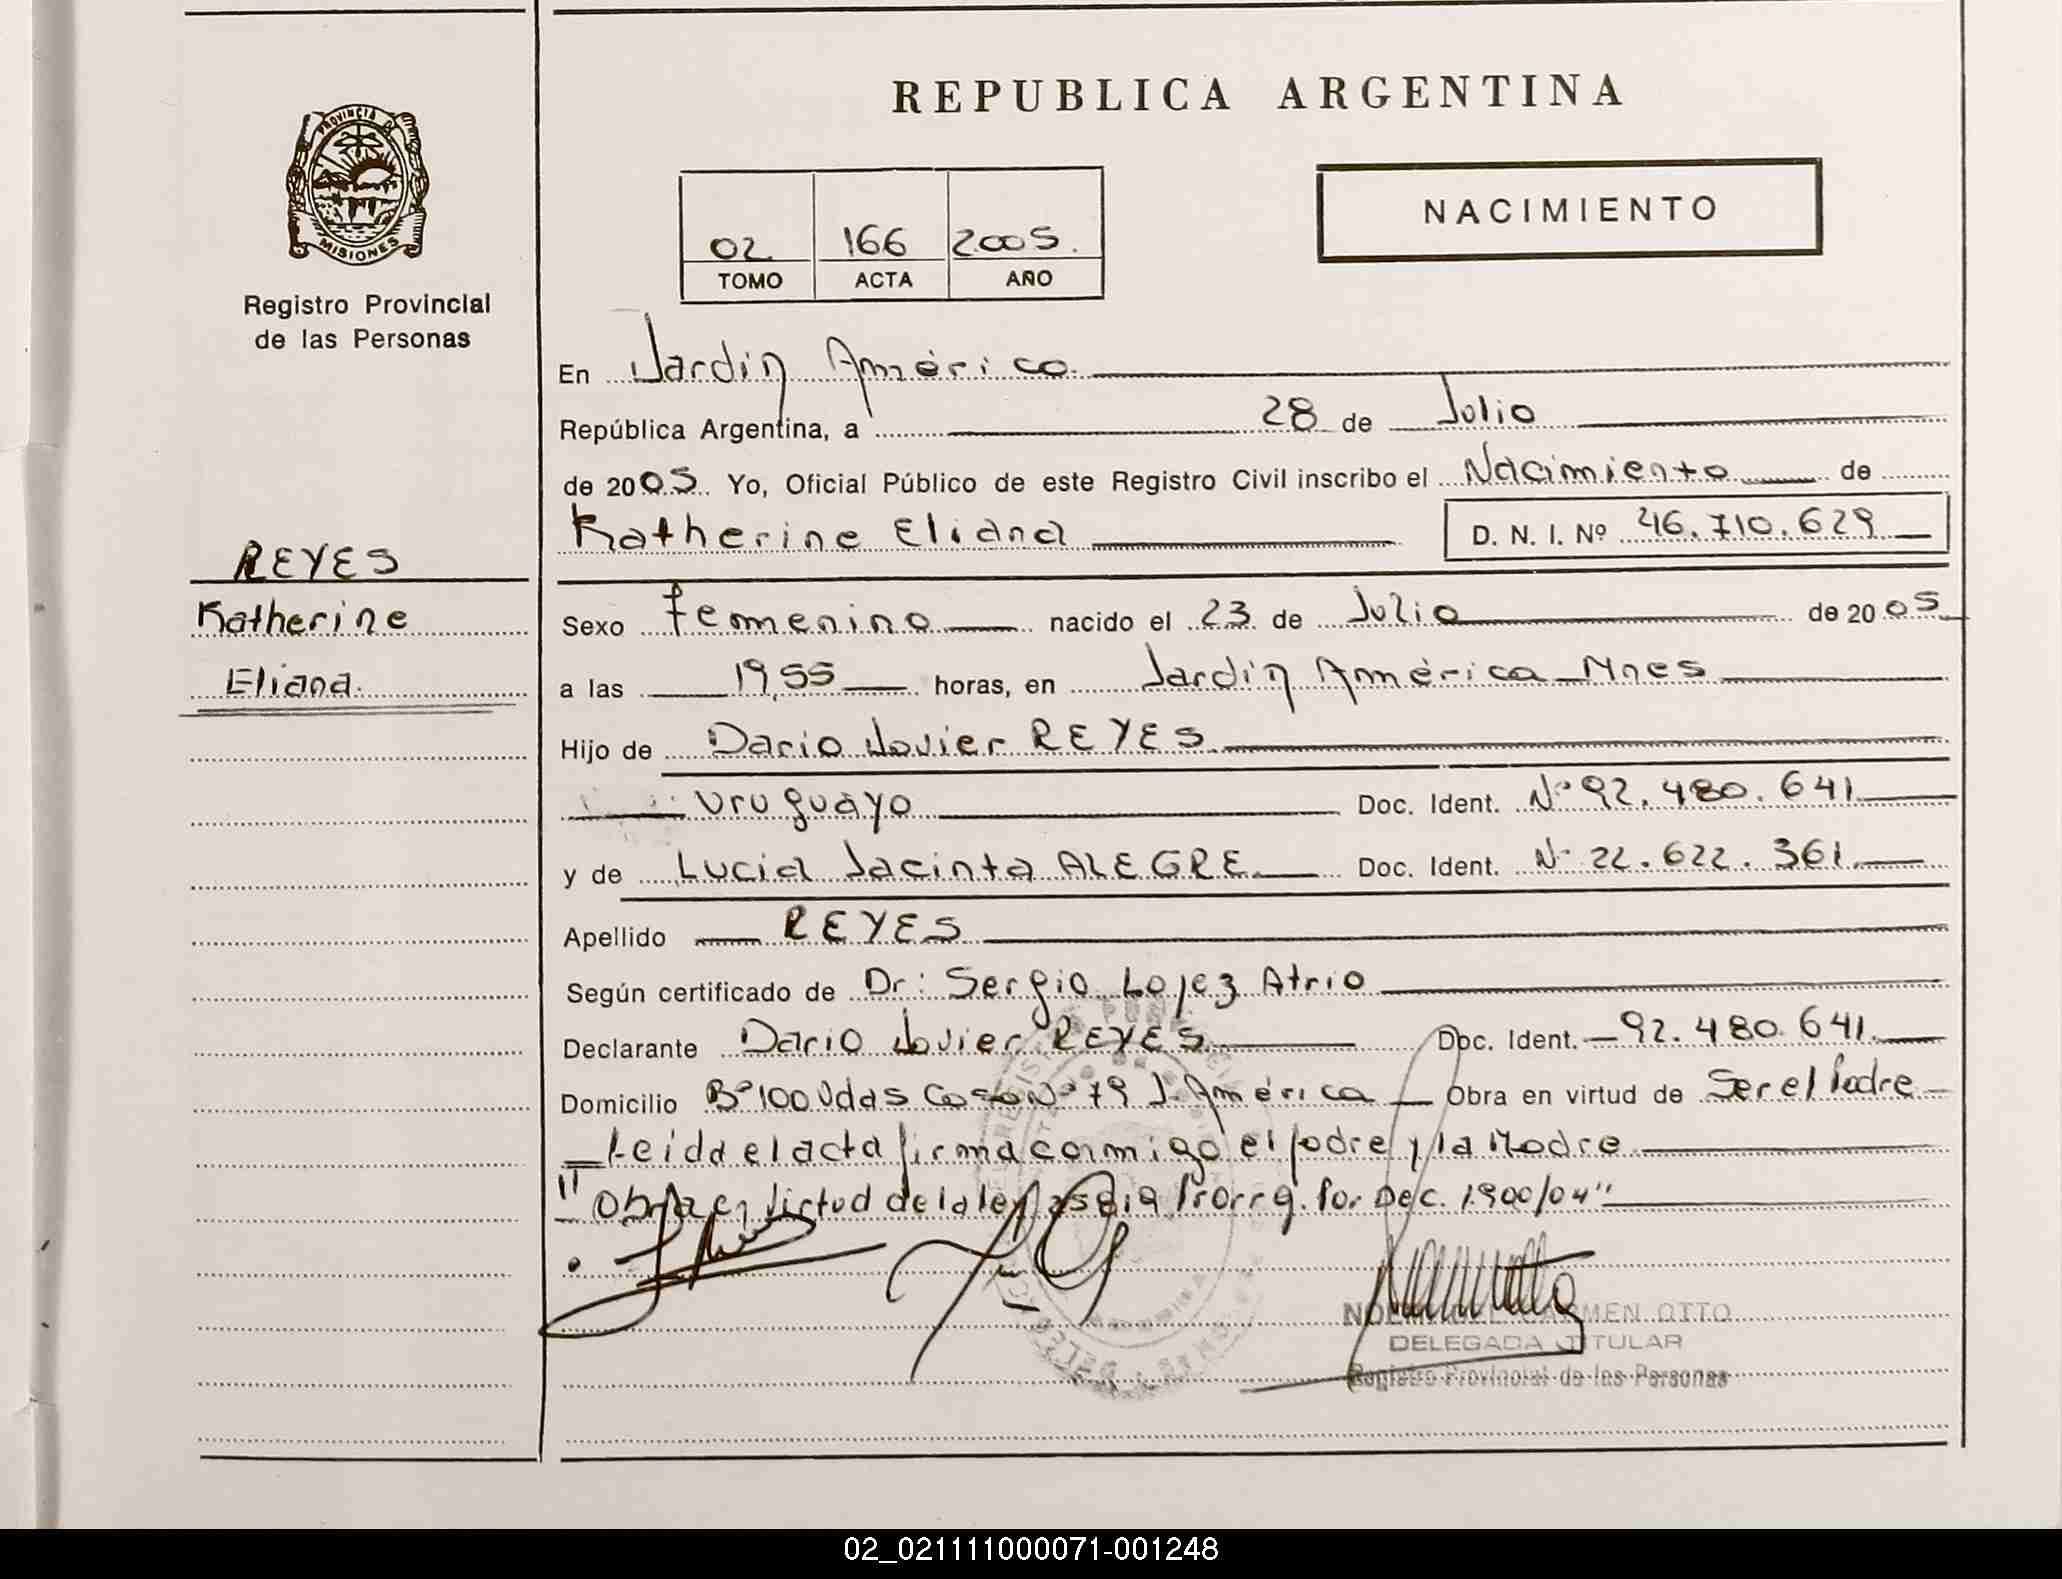 REPUBLICA ARGENTINA
PROVINCIA DE
MISIONES
Registro Provincial
de las Personas
NACIMIENTO
02 166 2005.
TOMO ACTA AÑO
En Jardín América
República Argentina, a 28 de Julio
de 2005. Yo, Oficial Público de este Registro Civil inscribo el Nacimiento de
Katherine Eliana D. N. I. Nº 46.710.629
REYES
Katherine
Eliana.
Sexo femenino nacido el 23 de Julio de 2005
a las 19,55 horas, en Jardín América Mnes
Hijo de Dario Javier REYES
Uruguayo Doc. Ident. Nº 92.480.641
y de Lucia Jacinta ALEGRE Doc. Ident. Nº 22.622.361
Apellido REYES
Según certificado de Dr: Sergio Lopez Atrio
Declarante Dario Javier REYES Doc. Ident. 92.480.641.
Domicilio Bº 100 Vdas Casa Nº 79 J. América Obra en virtud de Ser el Padre
Leida el acta firma conmigo el padre y la Madre
"Obra en virtud de la ley Prorrg. Por Dec. 1.900/04"
CARMEN OTTO
DELEGADA TITULAR
Registro Provincial de las Personas
02_021111000071-001248